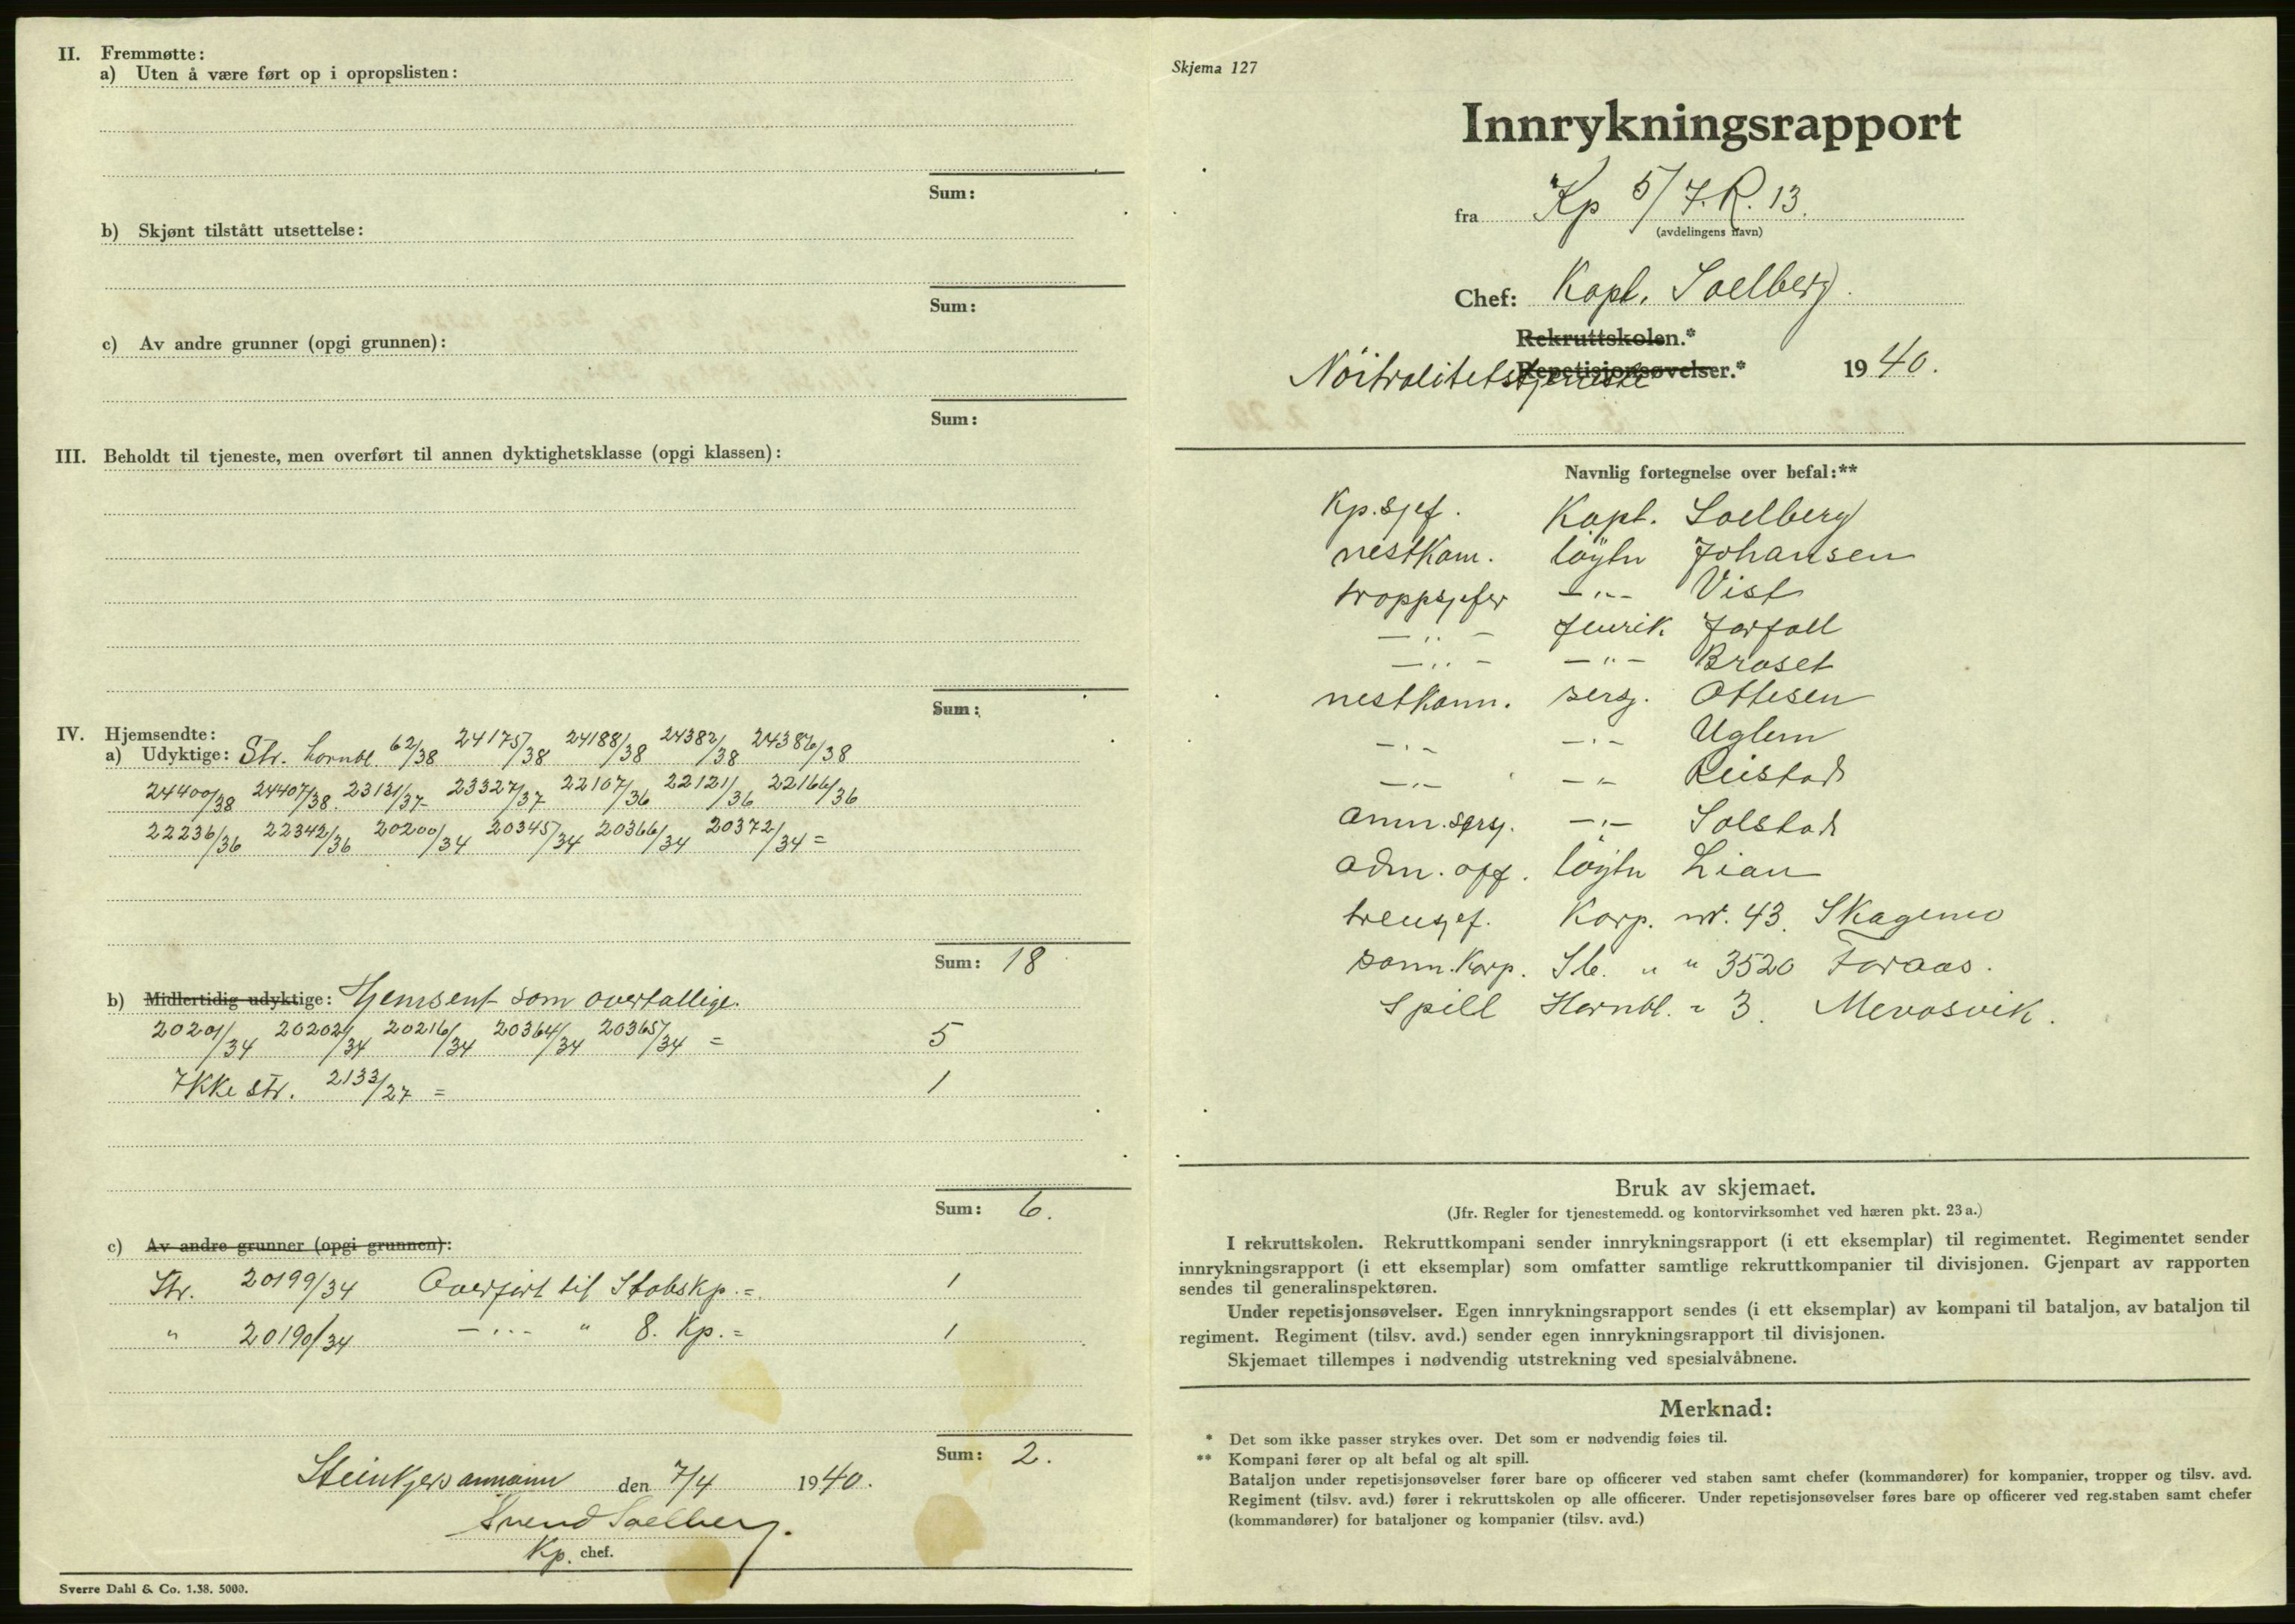 II. Fremmøtte:
a) Uten å være ført op i opropslisten:
Sum:
b) Skjønt tilstått utsettelse:
Sum:
c) Av andre grunner (opgi grunnen):
Sum:
III. Beholdt til tjeneste, men overført til annen dyktighetsklasse (opgi klassen):
Sum:
IV. Hjemsendte:
a) Udyktige: Str. hornbl 62/38 24175/38 24188/38 24382/38 24386/38
24400/38 24407/38. 23131/37 23327/37 22107/36 22121/36 22166/36
22236/36 22342/36 20200/34 20345/34 20366/34 20372/34 =
Sum: 18
b) Midlertidig udyktige: Hjemsent som overtallige.
20201/34 20202/34 20216/34 20364/34 20365/34 = 5
Ikke str. 2133/27 = 1
Sum: 6.
c) Av andre grunner (opgi grunnen):
Str. 20199/34 Overført til Stabskp. = 1
" 20190/34 -"- " 8. Kp. = 1
Sum: 2.
den 7/4 1940.
Svend Saelberg.
Kp. chef.
Sverre Dahl & Co. 1.38. 5000.
Skjema 127
Innrykningsrapport
fra Kp 5/I.R. 13.
(avdelingens navn)
Chef: Kapt. Saelberg.
Rekruttskolen.*
Nöitralitetstjeneste Repetisjonsøvelser.* 1940.
Navnlig fortegnelse over befal:**
Kp.sjef. Kapt. Saelberg
nestkom. löytn Johansen
troppsjefer -"- Vist
-"- fenrik Jarfall
-"- -"- Braset
nestkom. serg. Ottesen
-"- -"- Uglem
-"- -"- Reistad
amm.serg. -"- Solstad
adm. off. löytn Lian
trensjef. Korp. nr. 43. Skagemo
sann.korp. St. " " 3520 Foraas.
Spill Hornbl. " 3. Mevasvik.
Bruk av skjemaet.
(Jfr. Regler for tjenestemedd. og kontorvirksomhet ved hæren pkt. 23 a.)
I rekruttskolen. Rekruttkompani sender innrykningsrapport (i ett eksemplar) til regimentet. Regimentet sender
innrykningsrapport (i ett eksemplar) som omfatter samtlige rekruttkompanier til divisjonen. Gjenpart av rapporten
sendes til generalinspektøren.
Under repetisjonsøvelser. Egen innrykningsrapport sendes (i ett eksemplar) av kompani til bataljon, av bataljon til
regiment. Regiment (tilsv. avd.) sender egen innrykningsrapport til divisjonen.
Skjemaet tillempes i nødvendig utstrekning ved spesialvåbnene.
Merknad:
* Det som ikke passer strykes over. Det som er nødvendig føies til.
** Kompani fører op alt befal og alt spill.
Bataljon under repetisjonsøvelser fører bare op officerer ved staben samt chefer (kommandører) for kompanier, tropper og tilsv. avd.
Regiment (tilsv. avd.) fører i rekruttskolen op alle officerer. Under repetisjonsøvelser føres bare op officerer ved reg.staben samt chefer
(kommandører) for bataljoner og kompanier (tilsv. avd.)